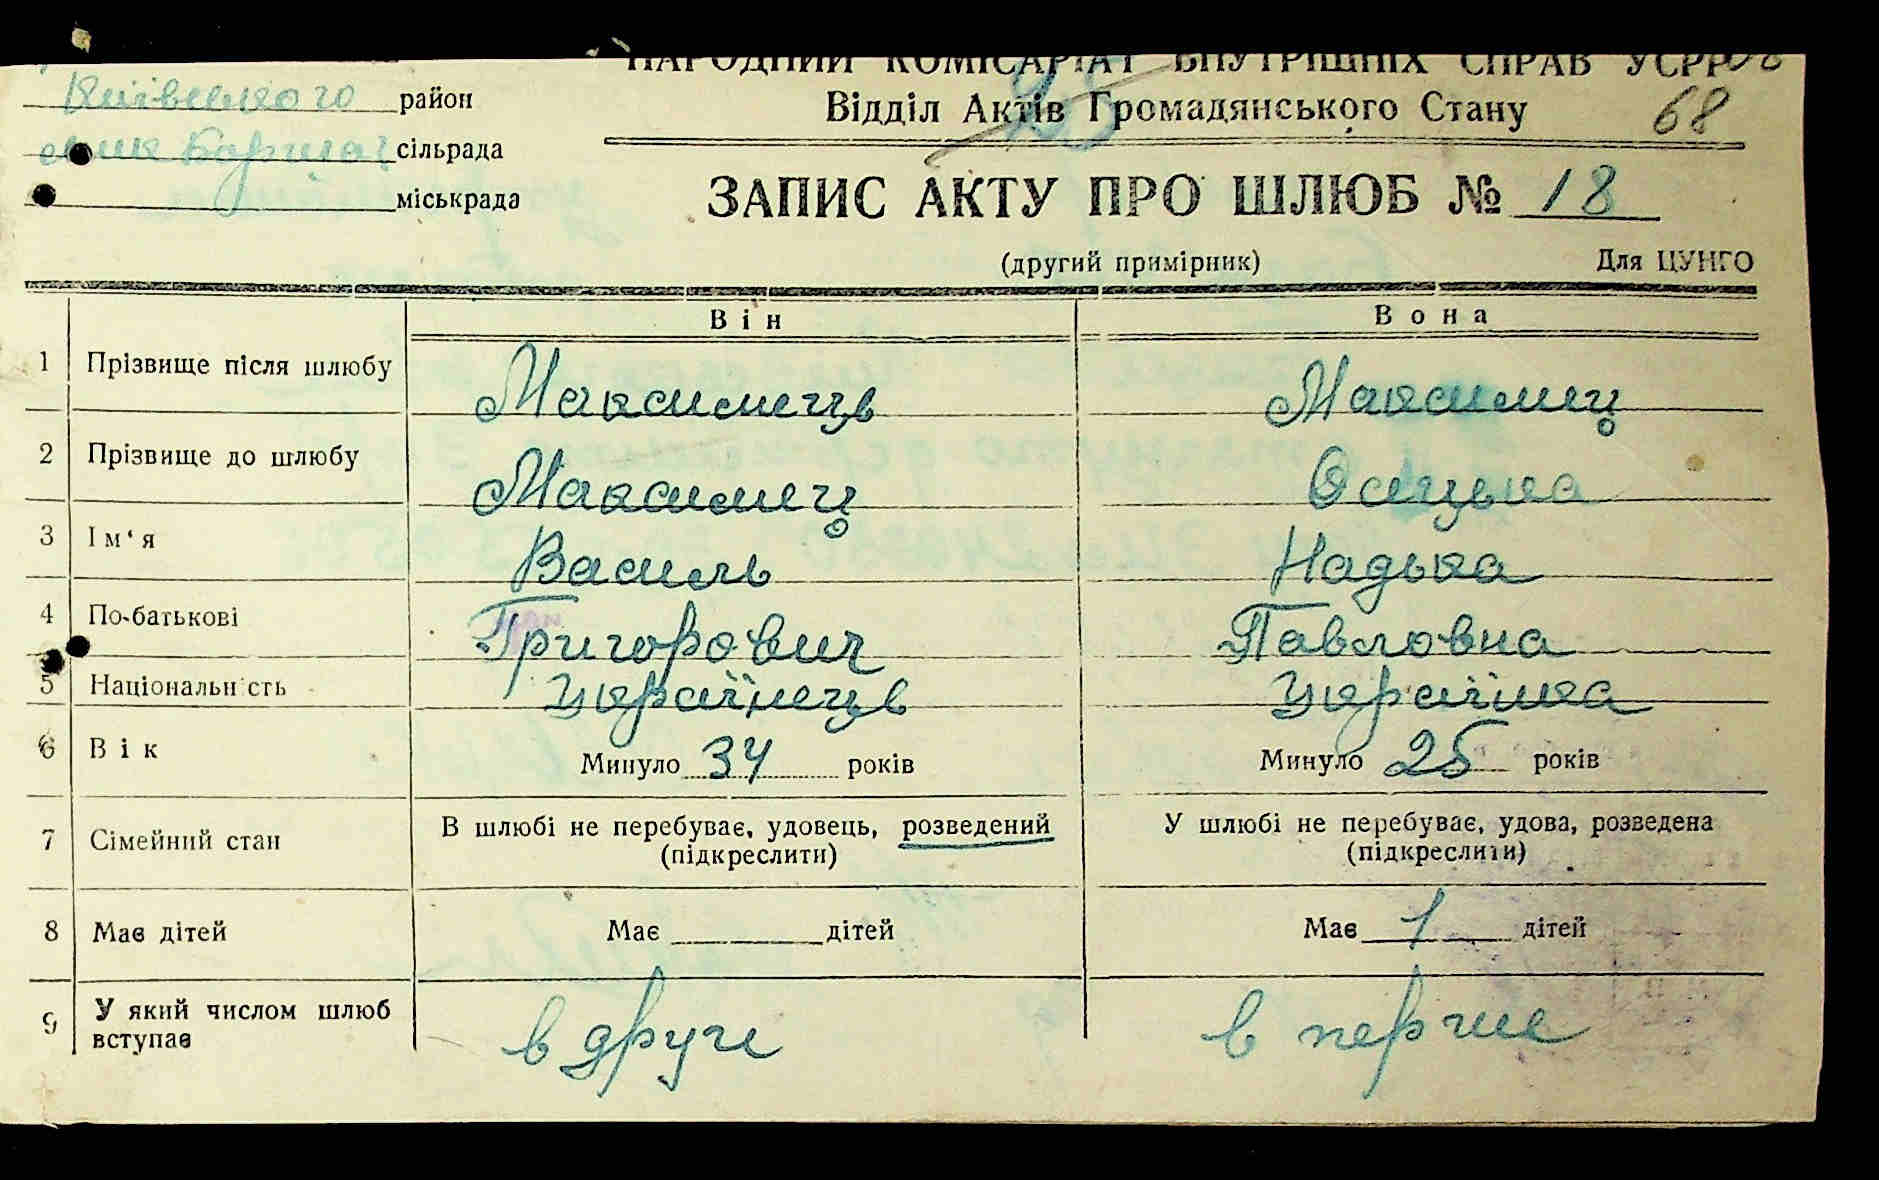 НАРОДНИЙ КОМІСАРІАТ ВНУТРІШНІХ СПРАВ УСРР
Київського район
Відділ Актів Громадянського Стану 68
сільрада
міськрада
ЗАПИС АКТУ ПРО ШЛЮБ № 18
(другий примірник) Для ЦУНГО
Він Вона
1 Прізвище після шлюбу Максимець Максимец
2 Прізвище до шлюбу Максимец
3 Ім'я Василь Надька
4 По-батькові Григорович Павловна
5 Національність українець українка
6 Вік Минуло 34 років Минуло 25 років
7 Сімейний стан В шлюбі не перебуває, удовець, розведений У шлюбі не перебуває, удова, розведена
(підкреслити) (підкреслити)
8 Має дітей Має дітей Має 1 дітей
9 У який числом шлюб
вступає в друге в перше